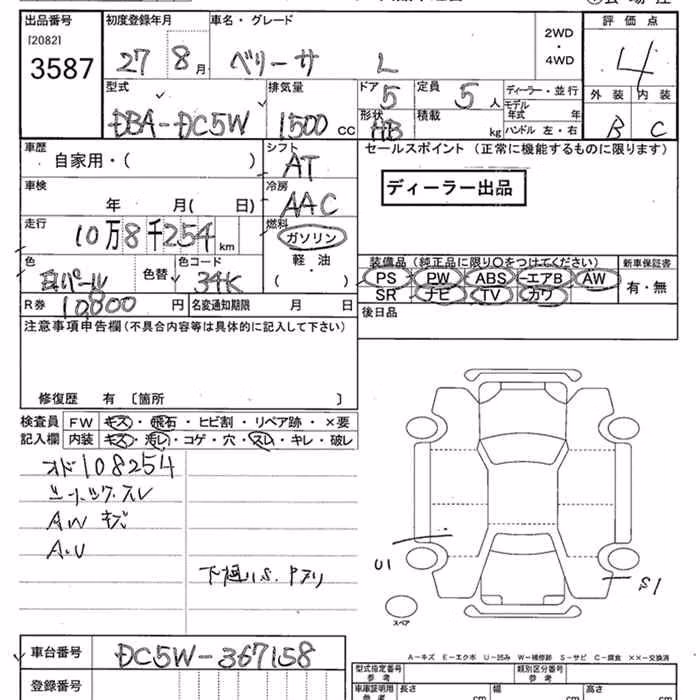 出品番号
[2082]
3587
初度登録年月
27 8月
車名・グレード
ベリーサ L
2WD
・
4WD
評価点
4
型式
DBA-DC5W
排気量
1500 CC
ドア
5
定員
5人
形状
HB
積載
kg
ディーラー・並行
モデル
年式 年
ハンドル 左・右
外装
B
内装
C
車歴
自家用・( )
シフト
AT
車検
年 月( 日)
冷房
AAC
走行
10万8千254 km
燃料
ガソリン
軽・油
( )
色
白パール
色替
色コード
34K
R券
10,800 円
名変通知期限 月 日
セールスポイント (正常に機能するものに限ります)
ディーラー出品
装備品 (純正品に限り○をつけてください)
PS PW ABS エアB AW
SR ナビ TV カワ
新車保証書
有・無
後日品
注意事項申告欄(不具合内容等は具体的に記入して下さい)
修復歴 有 〔箇所 〕
検査員
記入欄
FW キズ・飛石・ヒビ割・リペア跡・×要
内装 キズ・汚レ・コゲ・穴・スレ・キレ・破レ
オド108254
AW キズ
A.U
U1
S1
スペア
A-キズ E-エクボ U-凹み W-補修跡 S-サビ C-腐食 ××-交換済
車台番号
DC5W-367158
登録番号
型式指定番号
参考
類別区分番号
参考
車庫証明用
参考
長さ cm
幅 cm
高さ cm